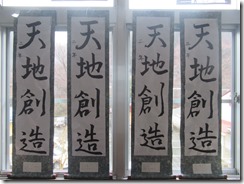 天地創造
天地創造
天地創造
天地創造